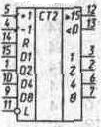 5 +1 CT2 ≥15 12
4 -1 <0 13
14 R
15 D1 1 3
1 D2 2 2
10 D4 4 6
9 D8 8 7
11 L